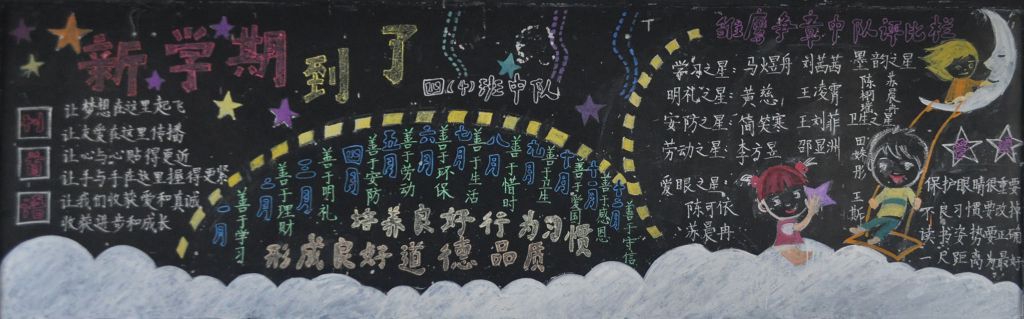 新学期到了
四(十)班中队
让梦想在这里起飞
让友爱在这里传播
让心与心贴得更近
让手与手在这里握得更紧
让我们收获爱和真诚
收获进步和成长
一月 善于学习
二月 善于理财
三月 善于明礼
四月 善于安防
五月 善于劳动
六月 善于环保
七月 善于生活
八月 善于惜时
九月 善于卫生
十月 善于爱国
十一月 善于感恩
十二月 善于守信
培养良好行为习惯
形成良好道德品质
雏鹰争章中队评比栏
学习之星：马煜舟 刘茜茜
明礼之星：黄慈 王凌霄
安防之星：简笑寒 王刘菲
劳动之星：李方昱 邵显洲
爱眼之星：
陈可依
苏晨冉
墨韵之星
卫生之星
田姝彤
王斯
保护眼睛很重要
不良习惯要改掉
读书姿势要正确
一尺距离为最好